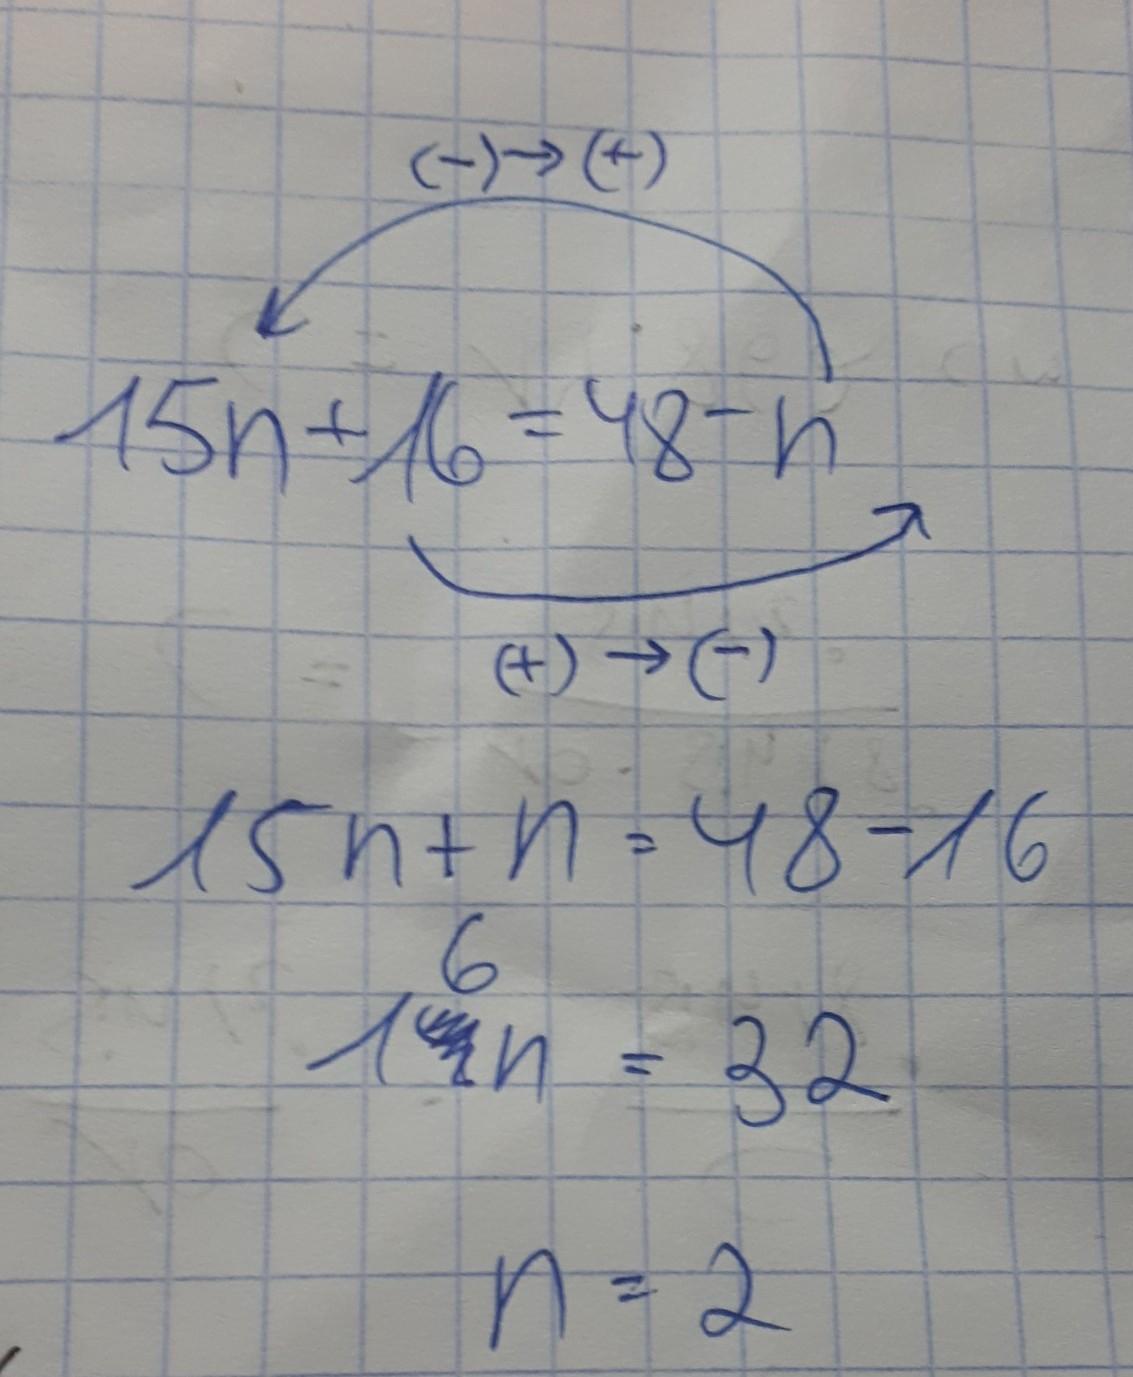 (-)→(+)
15n+16=48-n
(+)→(-)
15n+n=48-16
6
1n=32
n=2